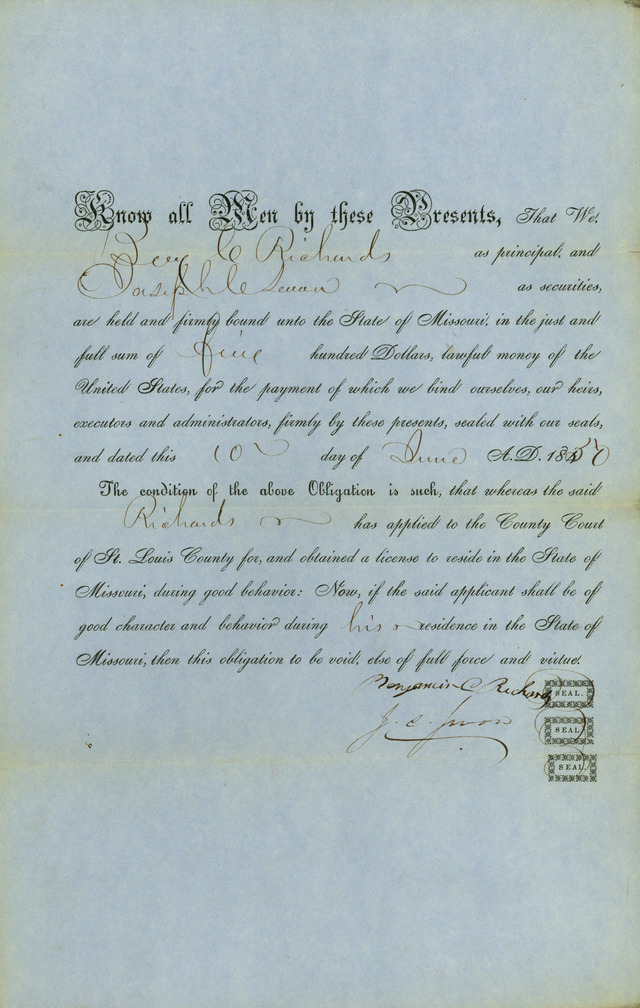 Know all Men by these Presents, That We,
C Richards as principal, and
Joseph C as securities,
are held and firmly bound unto the State of Missouri, in the just and
full sum of five hundred Dollars, lawful money of the
United States, for the payment of which we bind ourselves, our heirs,
executors and administrators, firmly by these presents, sealed with our seals,
and dated this 10 day of June A.D. 18
The condition of the above Obligation is such, that whereas the said
Richards has applied to the County Court
of St. Louis County for, and obtained a license to reside in the State of
Missouri, during good behavior: Now, if the said applicant shall be of
good character and behavior during his residence in the State of
Missouri, then this obligation to be void, else of full force and virtue.
Benjamin C Richards SEAL.
SEAL.
SEAL.